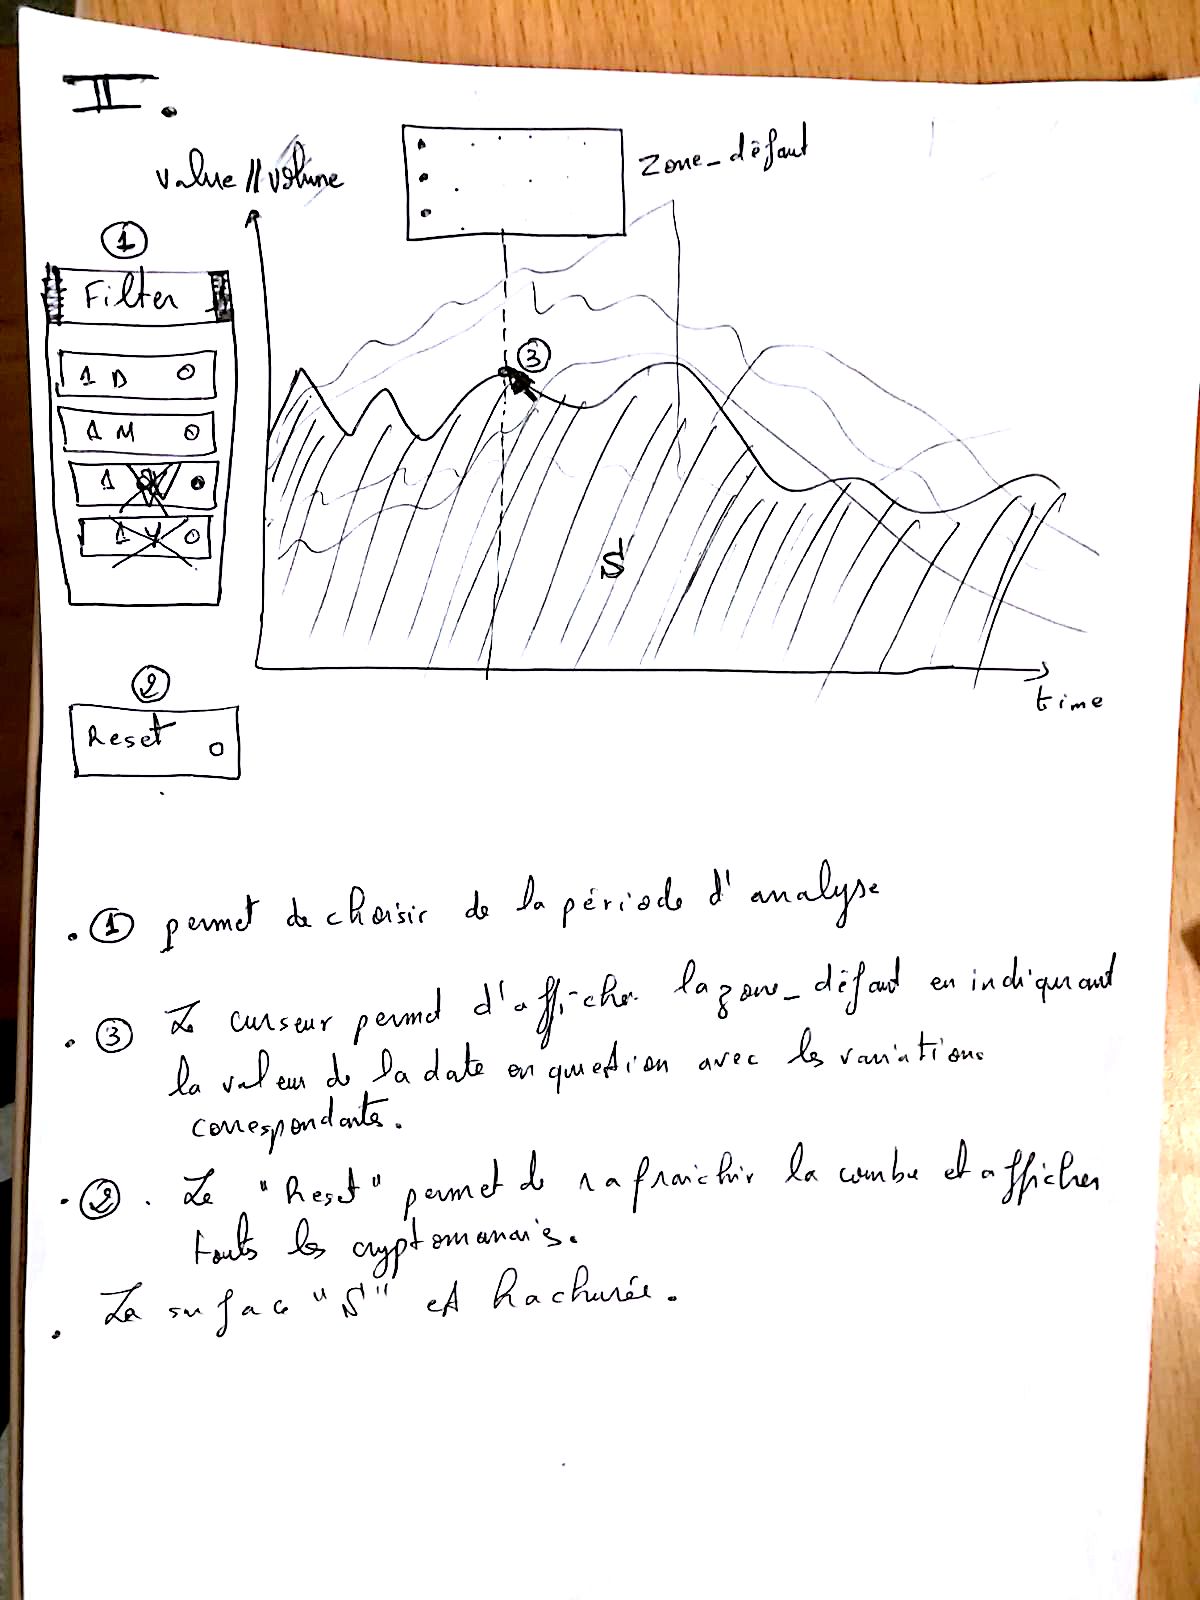 II.
value // volume
zone_défaut
1
Filter
1 D
1 M
1
1 Y
3
S
time
2
Reset
. 1 permet de choisir de la période d'analyse
. 3 Le curseur permet d'afficher la zone_défaut en indiquant
la valeur de la date en question avec les variations
correspondantes.
. 2 . Le "Reset" permet de rafraichir la courbe et afficher
touts les cryptomonnaies.
. La surface "S" est hachurée.